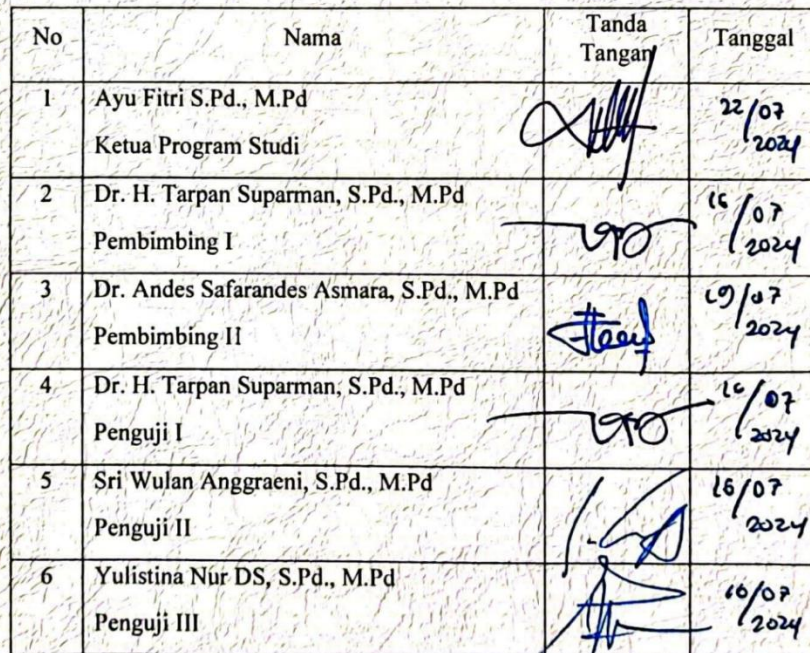 No Nama Tanda Tangan Tanggal
1 Ayu Fitri S.Pd., M.Pd 22/07
Ketua Program Studi 2024
2 Dr. H. Tarpan Suparman, S.Pd., M.Pd 16/07
Pembimbing I 2024
3 Dr. Andes Safarandes Asmara, S.Pd., M.Pd 19/07
Pembimbing II 2024
4 Dr. H. Tarpan Suparman, S.Pd., M.Pd 16/07
Penguji I 2024
5 Sri Wulan Anggraeni, S.Pd., M.Pd 16/07
Penguji II 2024
6 Yulistina Nur DS, S.Pd., M.Pd 16/07
Penguji III 2024